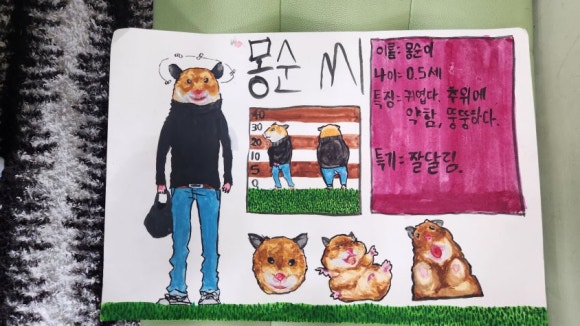 몽순 씨
이름: 몽순이
나이: 0.5세
특징: 귀엽다. 추위에
약함, 뚱뚱하다.
특기: 잘달림.
40
30
20
10
5
0